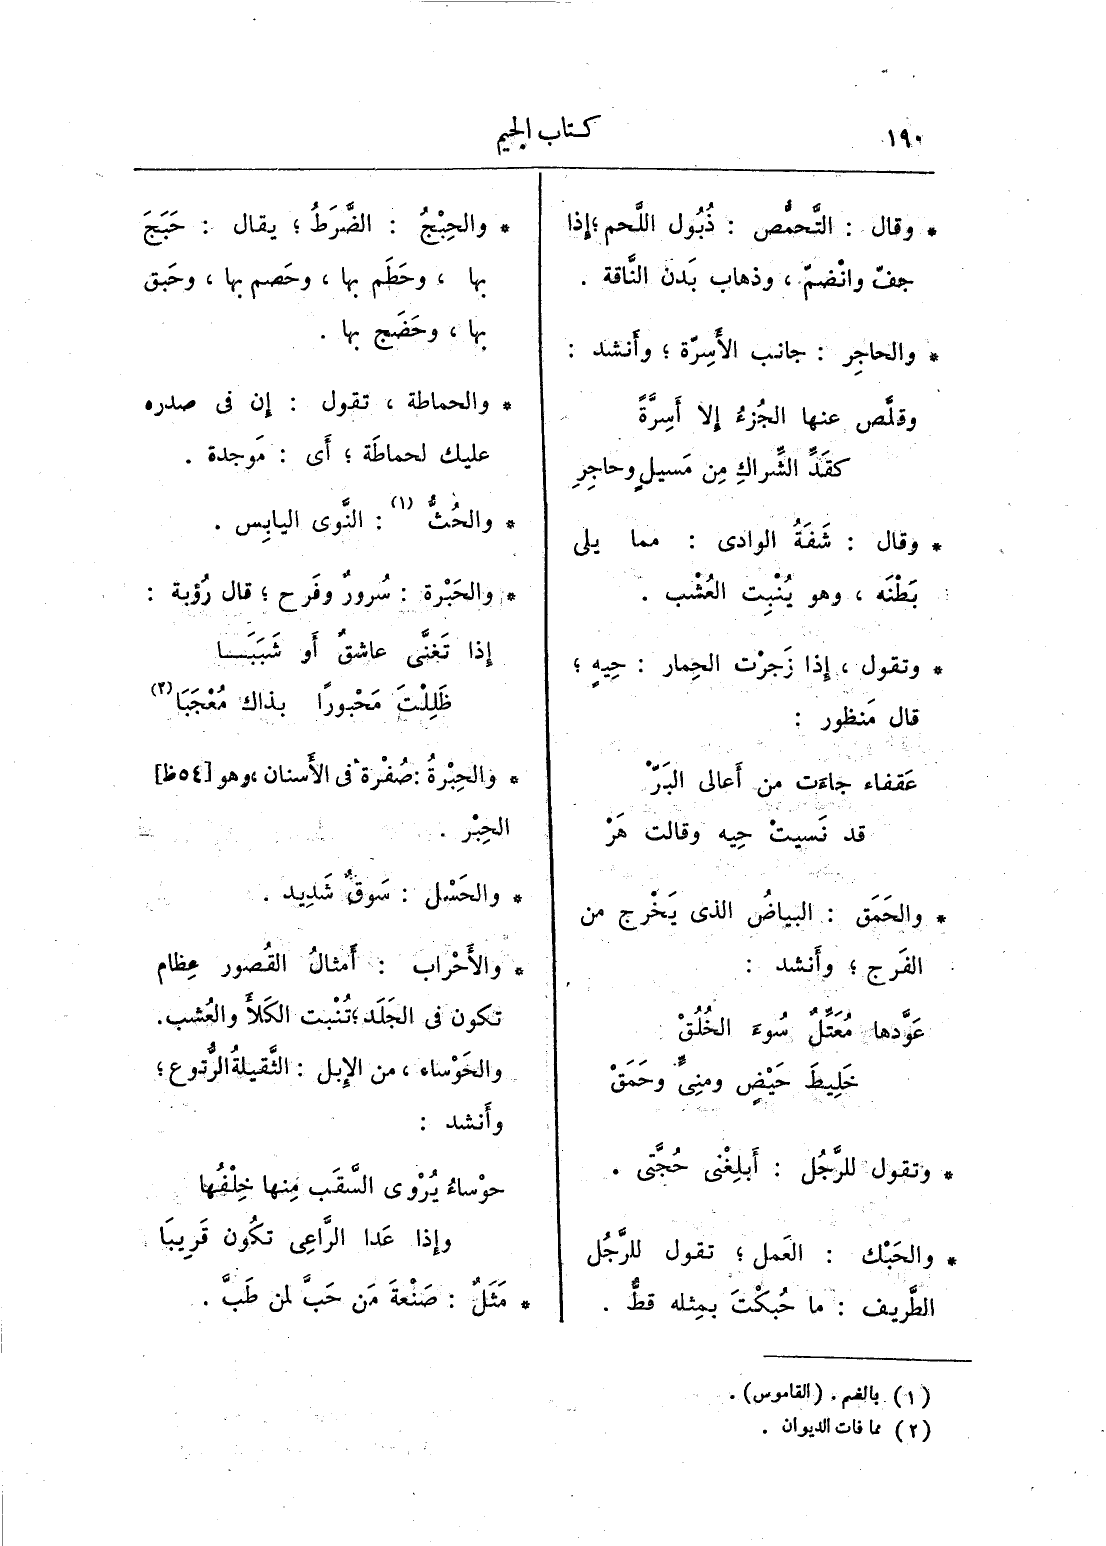 ١٩٠
كتاب الجيم
* وقال : التَّحمُّص : ذُبُول اللَّحم ؛ إِذا
جفّ وانْضمّ ، وذهاب بَدن النَّاقة .
* والحاجِر : جانب الأَسِرّة ؛ وأَنشد :
وقلَّص عنها الجُزءُ إِلا أَسِرَّةً
كقَدِّ الشِّراكِ مِن مَسيلٍ وحاجِرِ
* وقال : شَفَةُ الوادى : مما يلى
بَطْنَه ، وهو يُنْبِت العُشْب .
* وتقول ، إِذا زَجرْت الحِمار : حِيهٍ ؛
قال مَنظور :
عَقفاء جاءَت من أَعالى البَرّْ
قد نَسيتْ حِيه وقالت هَرْ
* والحَمَق : البياضُ الذى يَخْرج من
الفَرج ؛ وأَنشد :
عَوَّدها مُعَتِّلٌ سُوءَ الخُلُقْ
خَلِيطَ حَيْضٍ ومنِىٍّ وحَمَقْ
* وتقول للرَّجُل : أَبلِغْنى حُجَّتى .
* والحَبْك : العَمل ؛ تقول للرَّجُل
الظَّريف : ما حُبكْتَ بمِثله قطُّ .
* والحِبْجُ : الضَّرَطُ ؛ يقال : حَبَجَ
بها ، وحَطَم بها ، وحَصم بها ، وحَبق
بها ، وحَضَج بها .
* والحماطة ، تقول : إِن فى صدره
عليك لحماطَة ؛ أَى : مَوجدة .
* والحُثُّ (١) : النَّوى اليابِس .
* والحَبْرة : سُرورٌ وفَرح ؛ قال رُؤبة :
إِذا تَغنَّى عاشقٌ أَو شَبَبَــا
ظَلِلْتَ مَحْبورًا بذاك مُعْجَبَا (٢)
* والحِبْرةُ : صُفْرة فى الأَسنان ، وهو [٥٤ظ]
الحِبْر .
* والحَسْل : سَوقٌ شَدِيد .
* والأَحْراب : أَمثالُ القُصور عِظام
تكون فى الجَلَد ؛ تُنْبت الكَلأَ والعُشب .
والحَوْساء ، من الإِبل : الثَّقيلةُ الرُّتوع ؛
وأَنشد :
حوْساءُ يُرْوى السَّقَب مِنها خِلْفُها
وإِذا عَدا الرَّاعِى تكُون قَرِيبَا
* مَثَلٌ : صَنْعةَ مَن حَبَّ لمن طَبَّ .
(١) بالضم . (القاموس) .
(٢) مما فات الديوان .